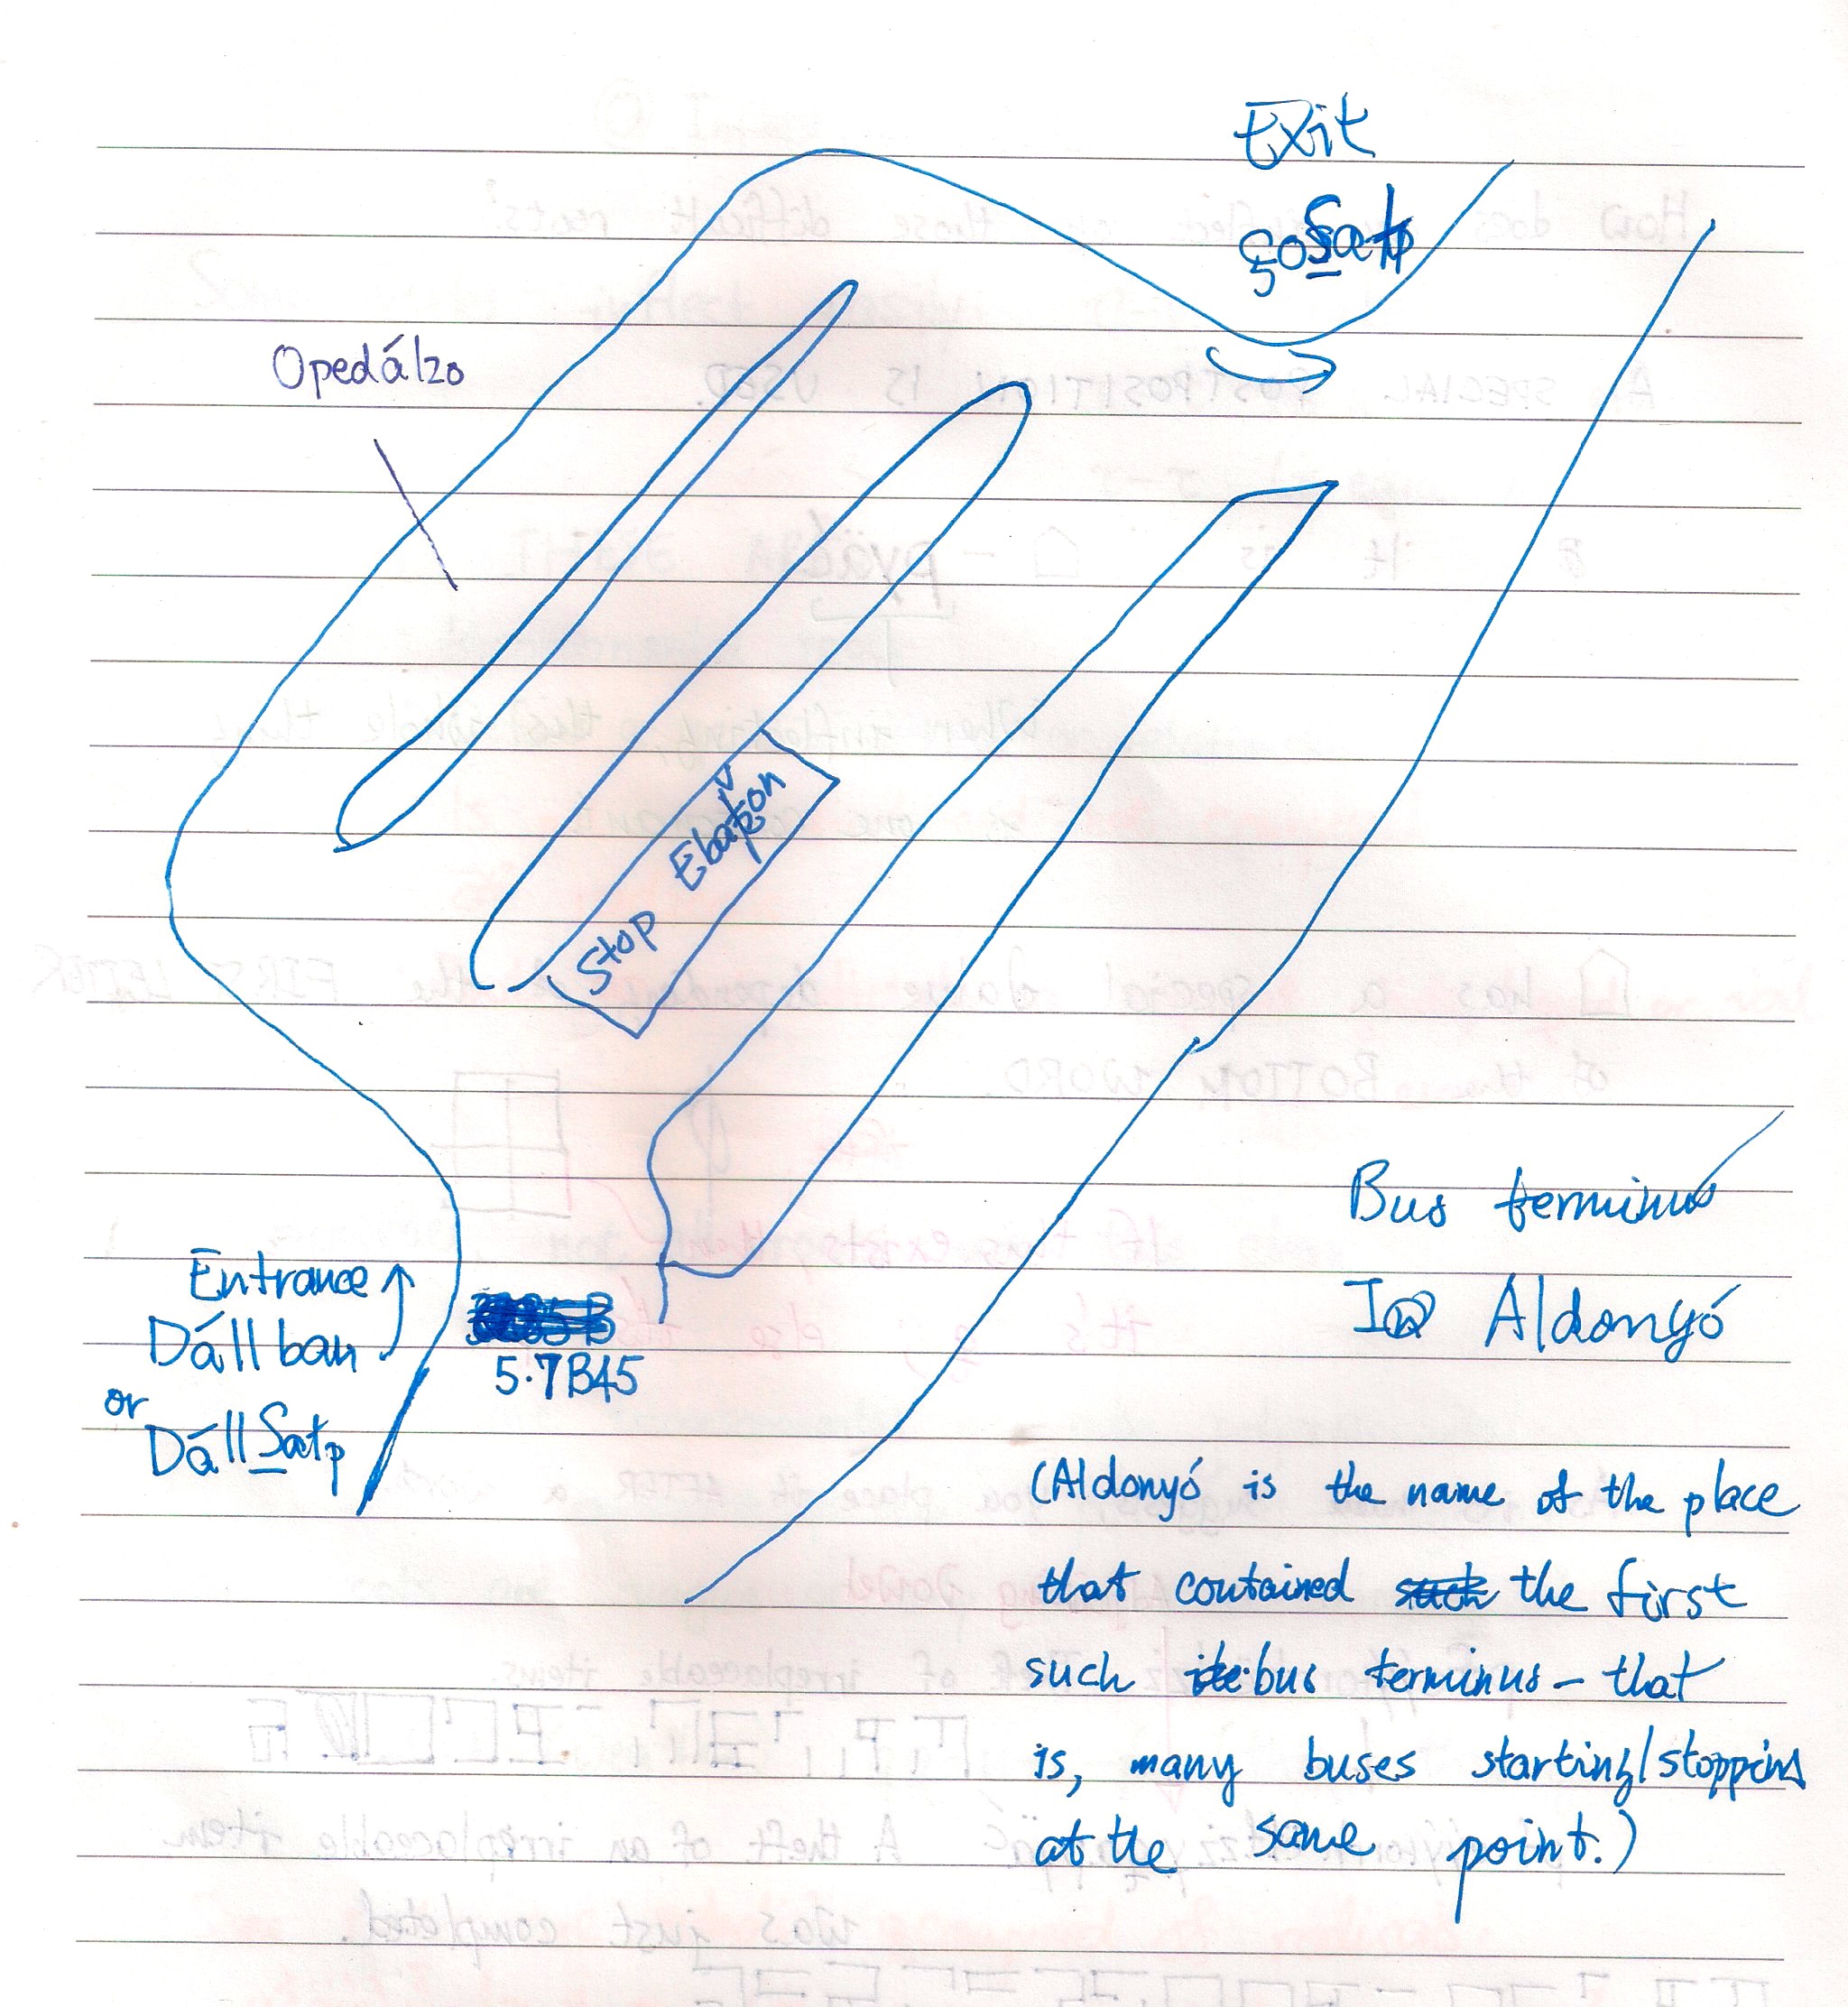 Exit
Opedálzo
Stop
Entrance
Dállban
5.7B45
or
Dáll S̲atp
Bus terminus
Aldonyó
(Aldonyó is the name of the place
that contained the first
such bus terminus – that
is, many buses starting/stopping
at the same point.)